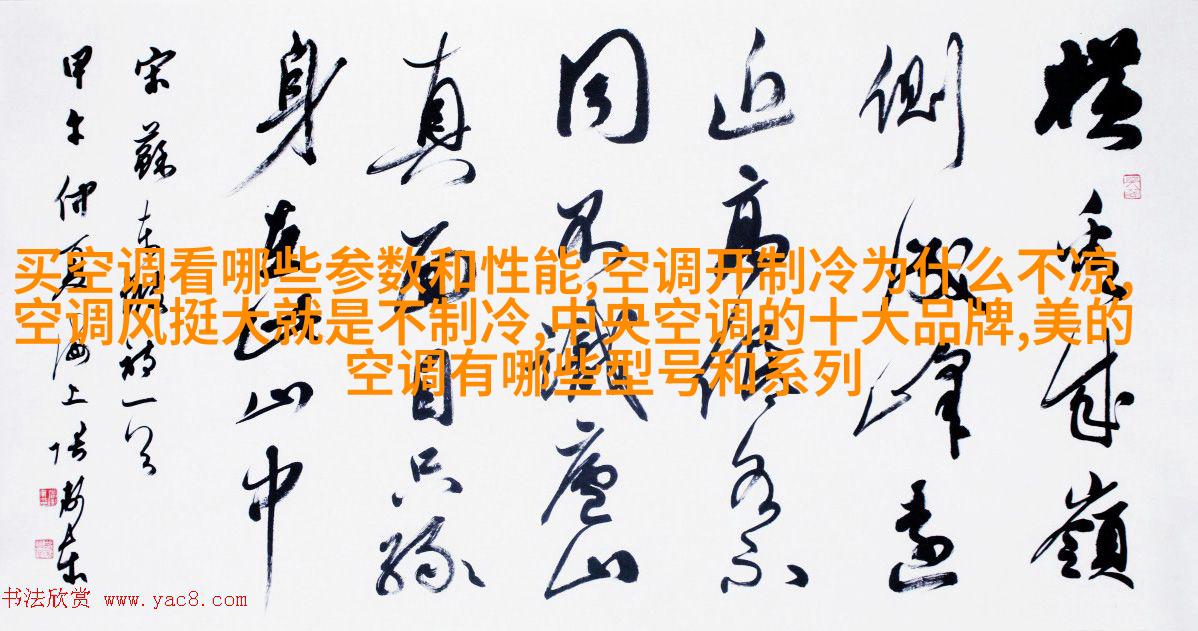 横看成嶺
側成峰遠
近高低各不
同不識廬山
真面目只緣
身在此山中
宋蘇東坡詩一首
甲午仲夏海上
买空调看哪些参数和性能,空调开制冷为什么不凉,
空调风挺大就是不制冷,中央空调的十大品牌,美的
空调有哪些型号和系列
书法欣赏 www.yac8.com